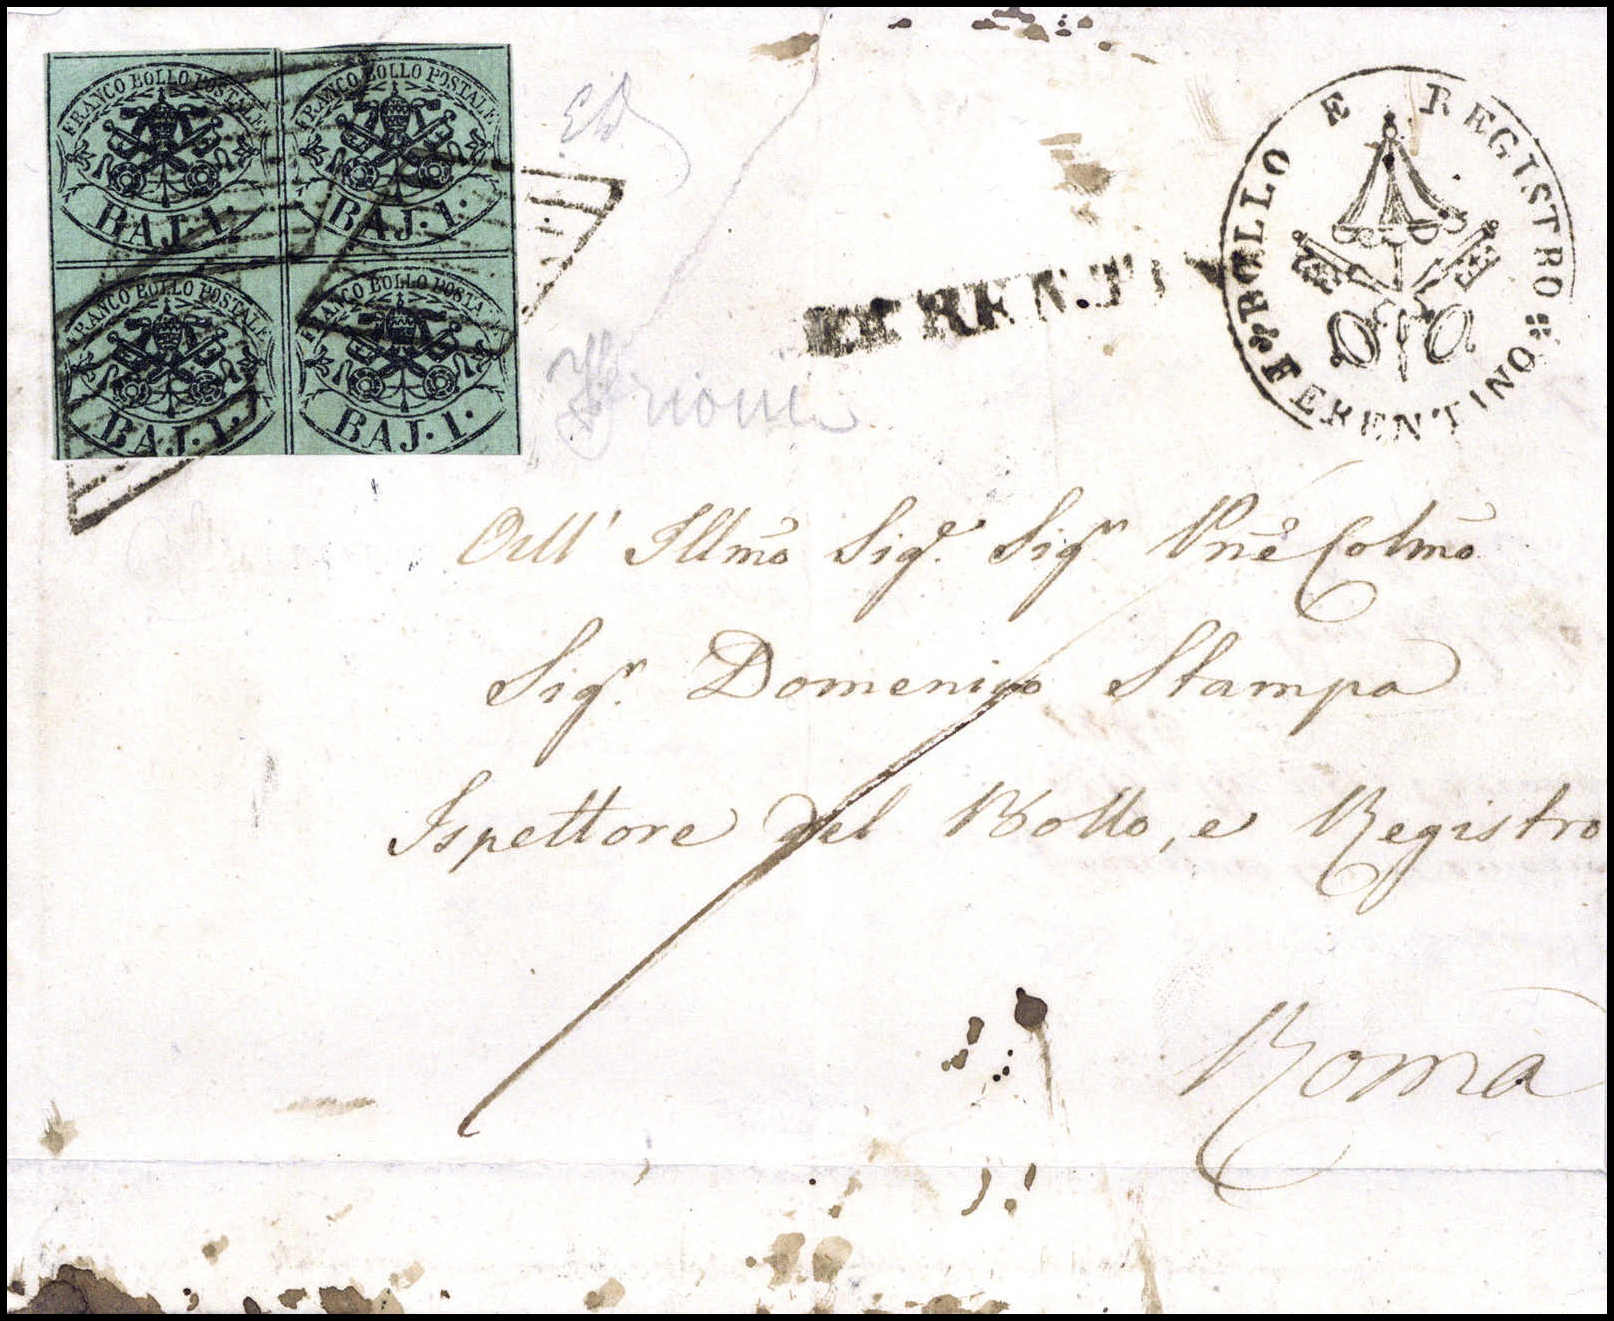 FRANCO BOLLO POSTALE
BAJ. 1.
FRANCO BOLLO POSTALE
BAJ. 1.
FRANCO BOLLO POSTALE
BAJ. 1.
FRANCO BOLLO POSTA
BAJ. 1.
BOLLO E REGISTRO
FERENTINO
FERENTIN
All' Illmo Sigr. Sigr Pne Colmo
Sigr. Domenico Stampa
Ispettore del Bollo, e Registro
Roma